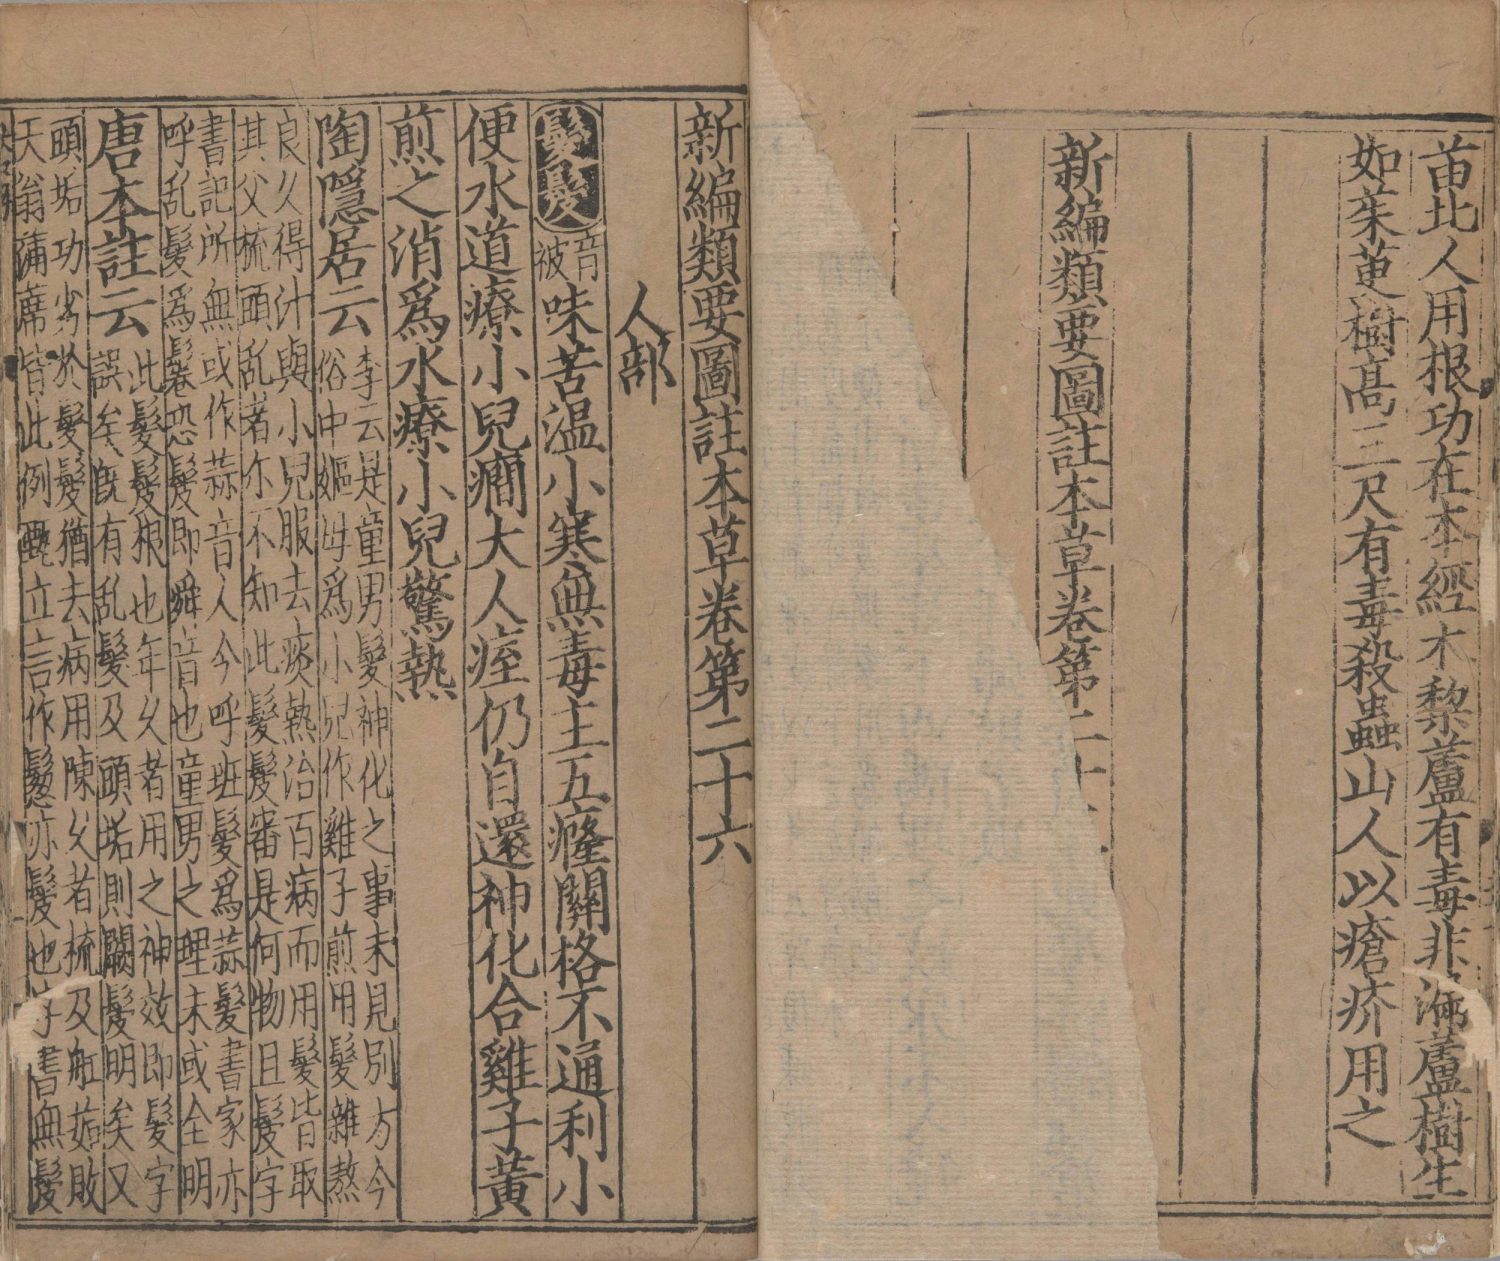 苗北人用根功在本經木黎蘆有毒非漏蘆樹生
如茱萸樹高三尺有毒殺蟲山人以瘡疥用之
新編類要圖註本草卷第二十
新編類要圖註本草卷第二十六
人部
髮髲音被味苦温小寒無毒主五癃關格不通利小
便水道療小兒癇大人痓仍自還神化合雞子黃
煎之消爲水療小兒驚熱
陶隱居云李云是童男髮神化之事未見別方今
俗中嫗母爲小兒作雞子煎用髮雜熬
良久得汁與小兒服去痰熱治百病而用髮皆取
其父梳頭乱者亦不知此髮髲審是何物且髲字
書記所無或作蒜音人今呼班髮爲蒜髮書家亦
呼乱髮爲鬈恐髲即舜音也童男之理未或全明
唐本註云此髮髲根也年久者用之神效即髮字
誤矣既有乱髮及頭垢則闕髮明矣又
頭垢功劣於髮髲猶去病用陳久者梳及舡茹敗
天翁蒲席皆此例甄立言作鬈亦髮也字書無髲